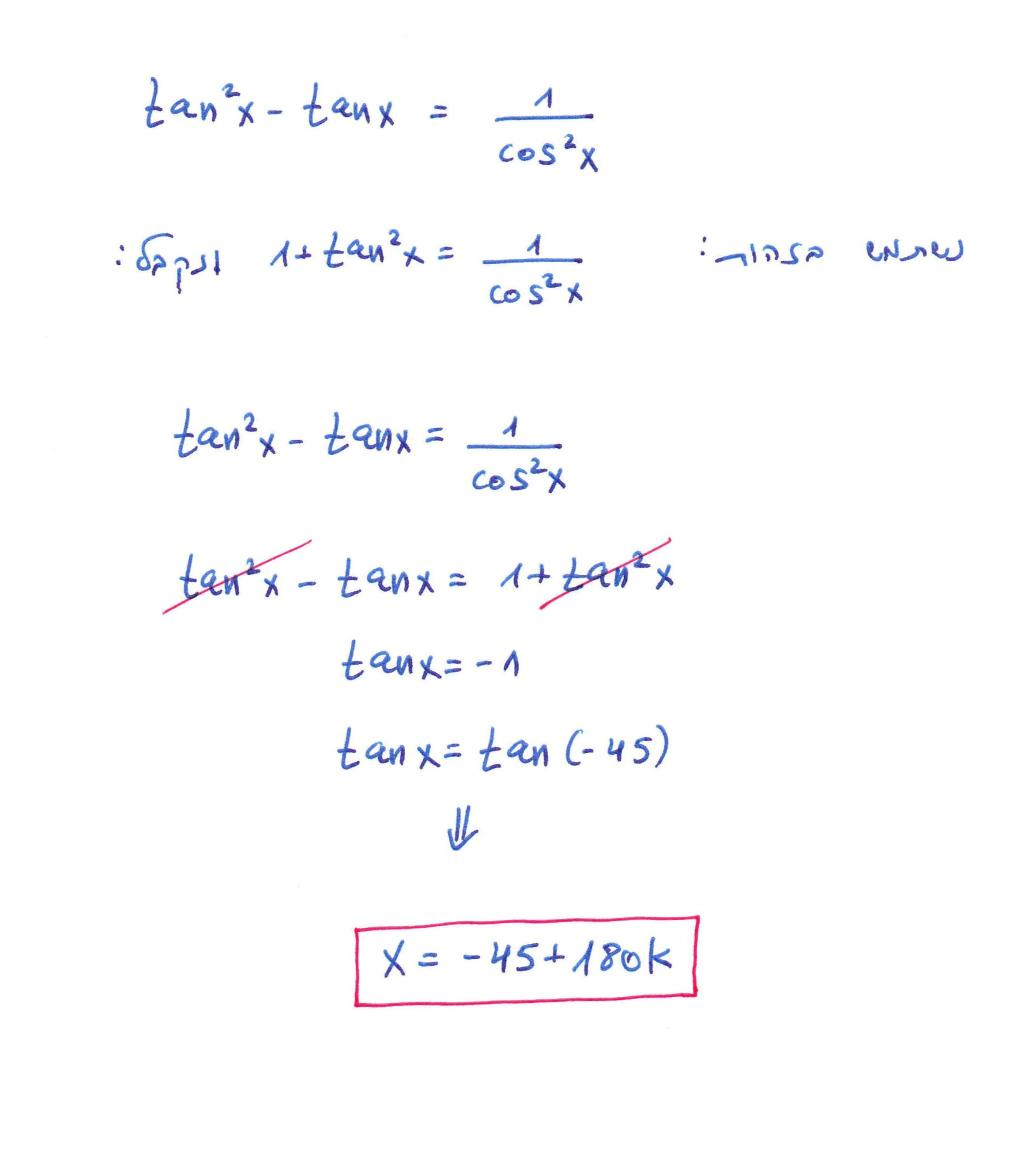 tan²x - tanx = 1/cos²x
נשתמש בזהות: 1+ tan²x = 1/cos²x ונקבל:
tan²x - tanx = 1/cos²x
tan²x - tanx = 1+ tan²x
tanx = -1
tanx = tan (-45)
⇓
x = -45+180k